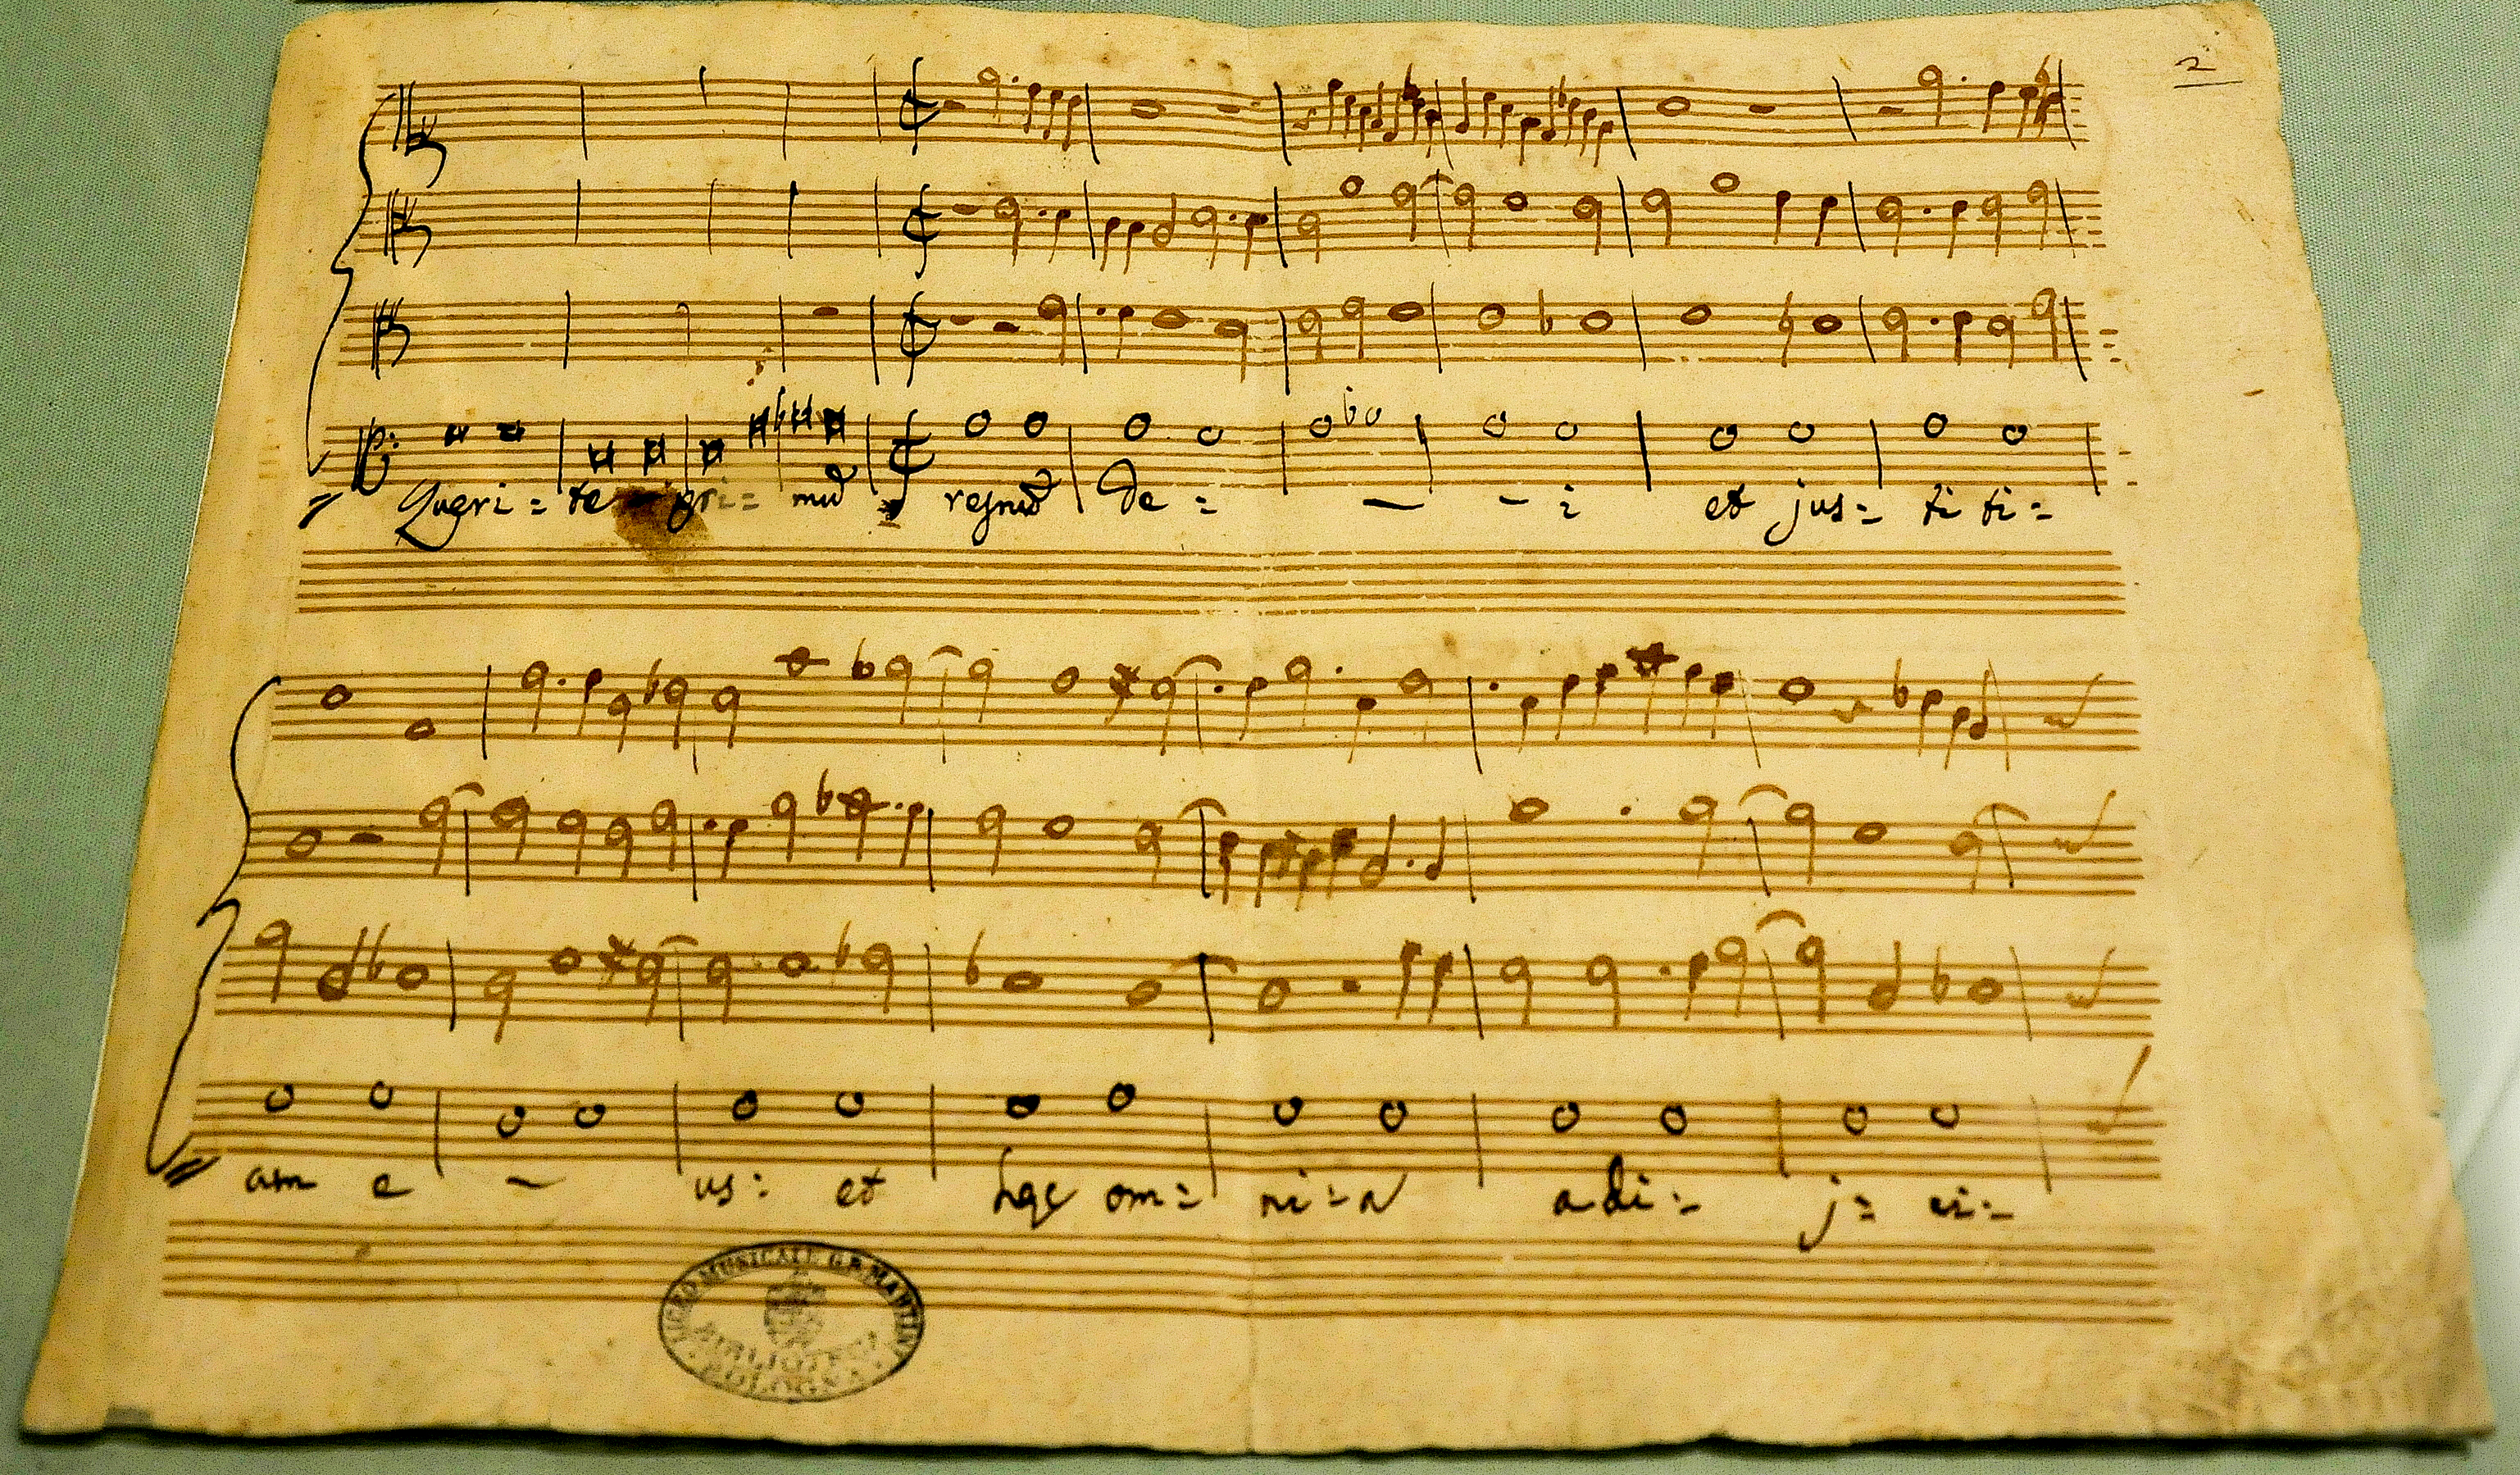 2
Queri = te pri = mū regnū De = - - i et jus = ti ti =
am e - us : et hęc om = ni = a adi = j = ci =
LICEO MUSICALE G.B. MARTINI
BIBLIOTECA
BOLOGNA